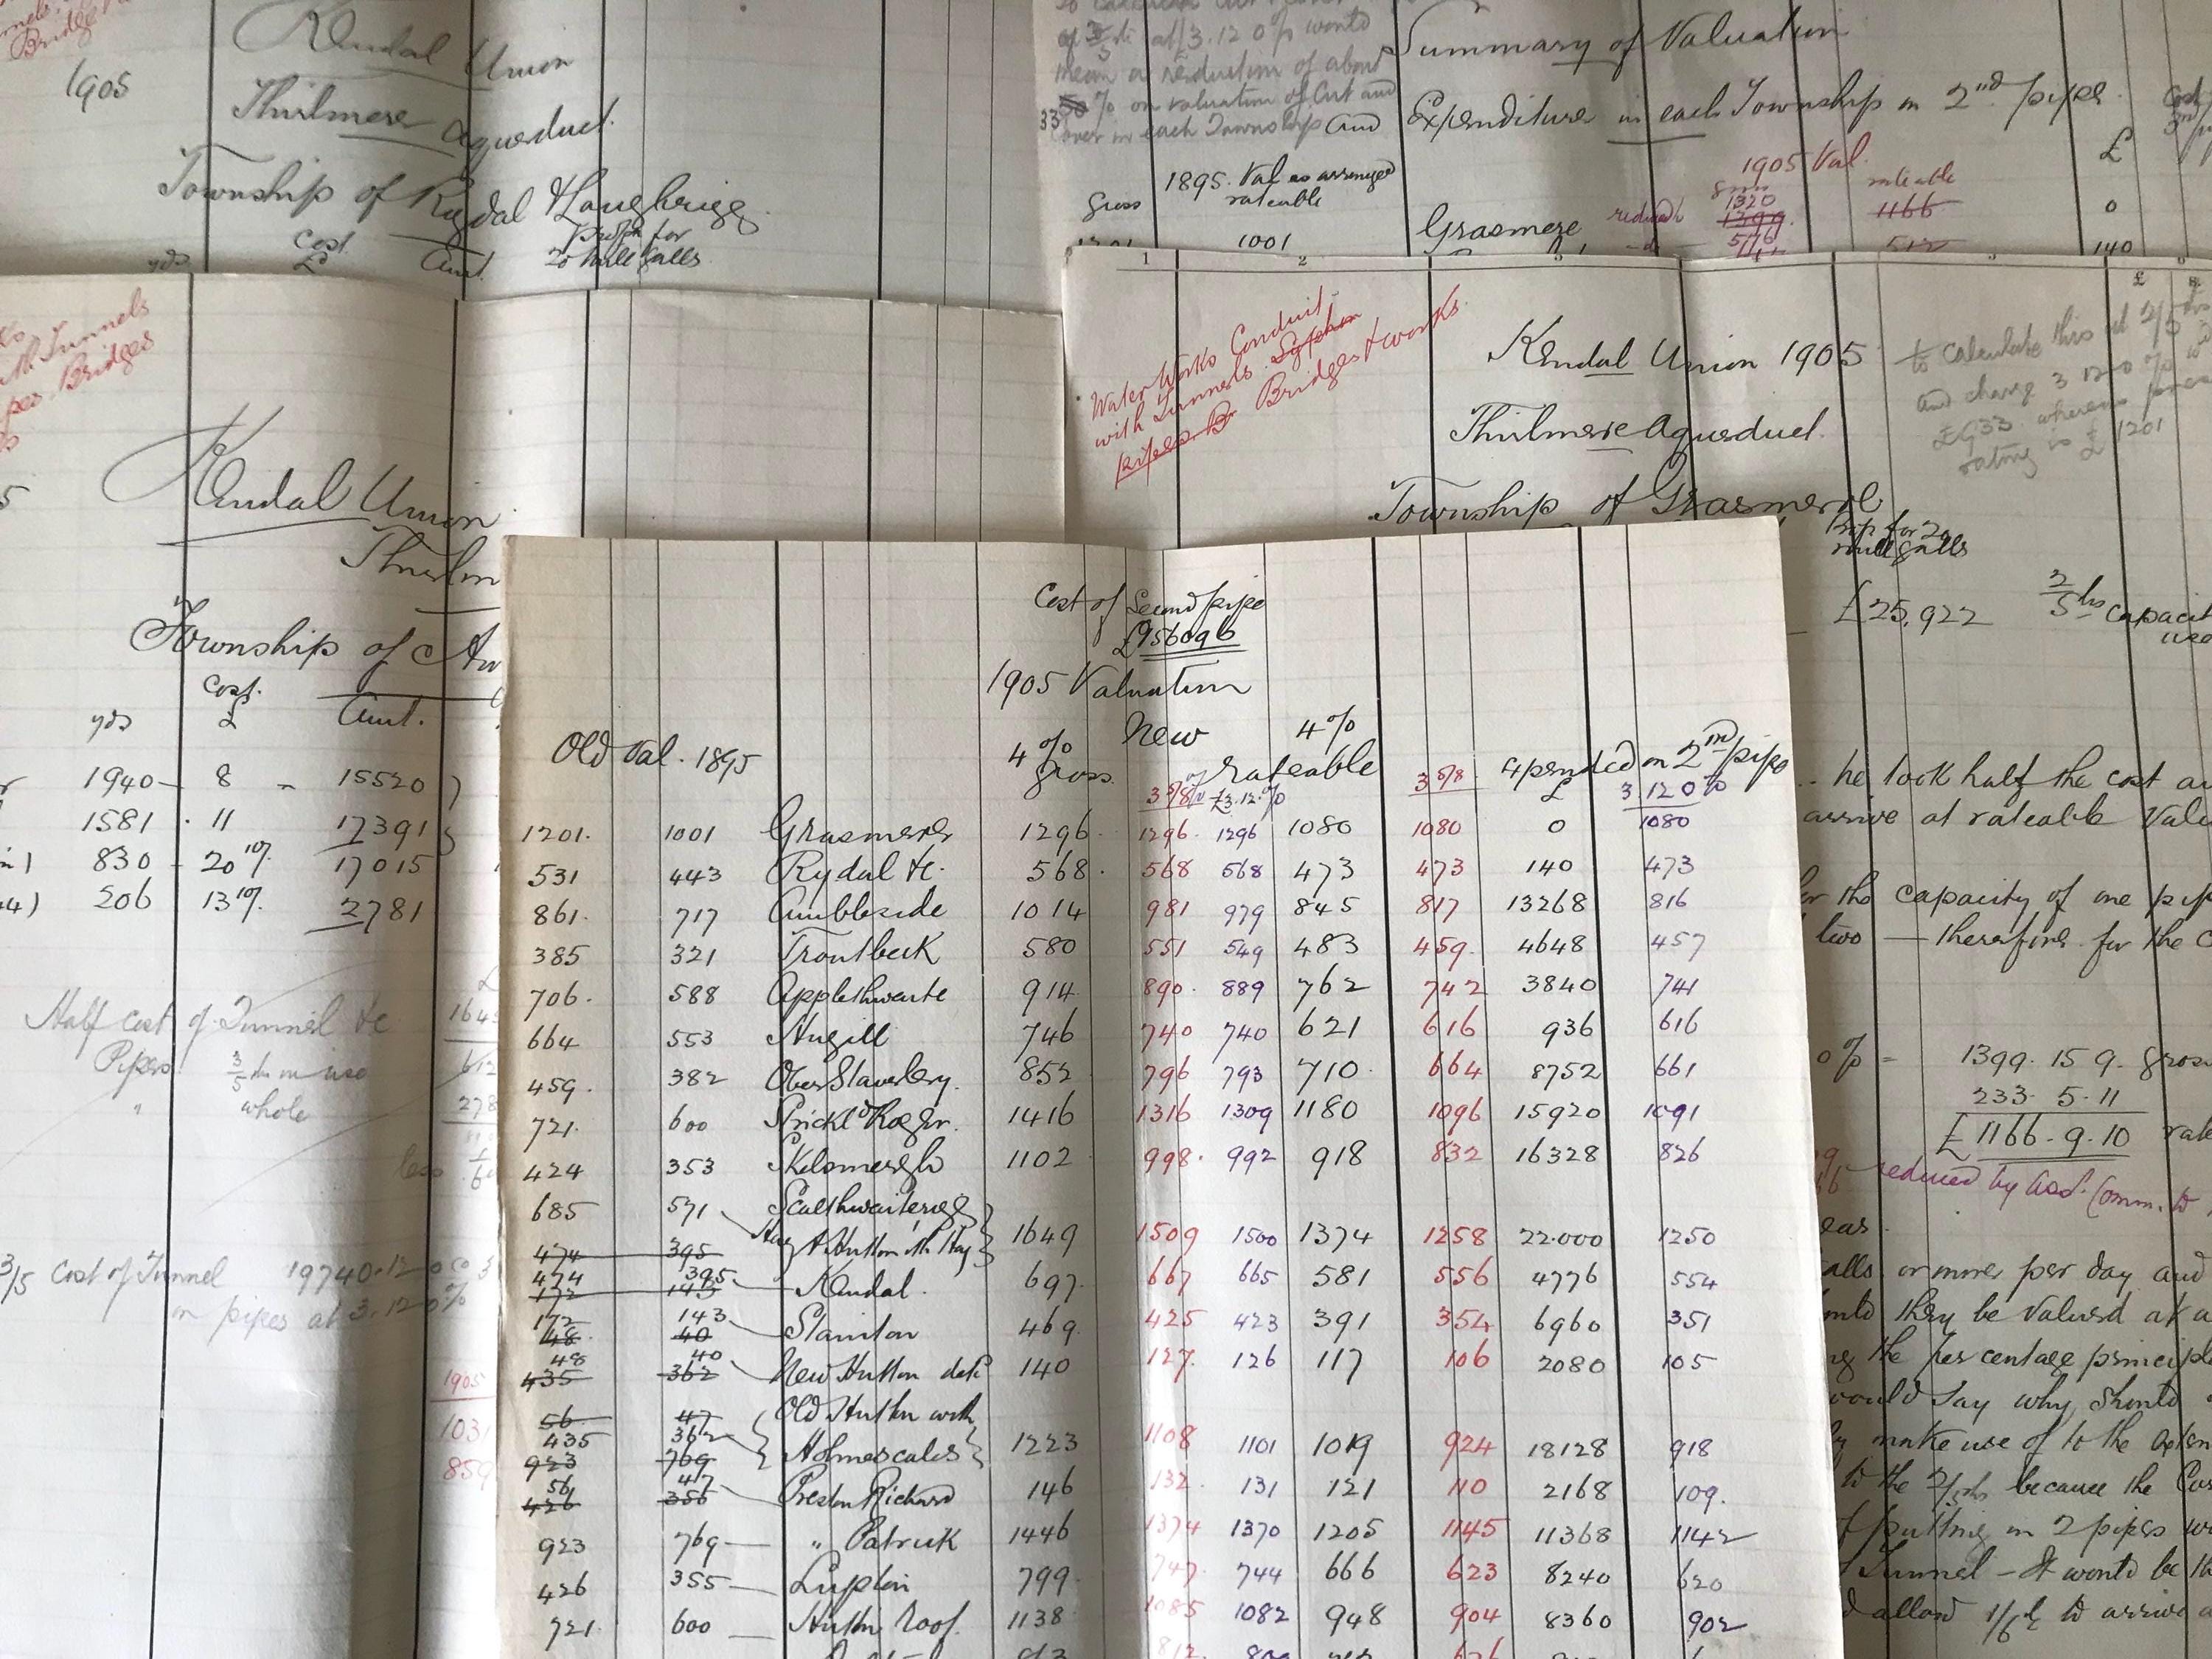 Bridge
Kendal Union
1905
Thirlmere Aqueduct.
Township of Rydal & Loughrigg
yds
Cost £
Amt.
Propn for 20 mill galls
of at £3.12.0 % would
mean a reduction of about
33 % on valuation of Cut and
cover in each Township and
Summary of Valuation
Expenditure in each Township on 2nd pipe.
£
1895. Val as arranged
Gross rateable
1905 Val.
gross rateable
1001 Grasmere reduced 1320 1399. 1166 0
do 576 512 140
with Tunnels
Bridges
Kendal Union
Township of
yds
Cost. £
Amt.
1940 - 8 - 15520
1581 . 11 17391
830 - 20 10/. 17015
206 13 10/. 2781
Half Cost of Tunnel &c
Pipes 3/5 ths in use
" whole
less
3/5 Cost of Tunnel 19740.12.0
in pipes at 3.12.0 %
1905
1031
859
1 2 3
Water Works Conduit
with Tunnels. Syphon
pipes Br Bridges & works
Kendal Union 1905
Thirlmere Aqueduct.
Township of Grasmere
to calculate this at 2/5 ths
and charge 3 12 0 %
£933. whereas present
rating is £1201
Prop for 20
mill galls
£25,922 2/5 ths capacity
Cost of Second pipe
£956096
1905 Valuation
Old Val. 1895 4% gross. New 4% rateable 3 5/8 expended on 2nd pipe
3 5/8 % £3.12.% £ 3.12 0 %
1201. 1001 Grasmere 1296. 1296. 1296 1080 1080 0 1080
531 443 Rydal &c. 568. 568 568 473 473 140 473
861. 717 Ambleside 1014 981 979 845 817 13268 816
385 321 Troutbeck 580 551 549 483 459. 4648 457
706. 588 Applethwaite 914 890. 889 762 742 3840 741
664 553 Hugill 746 740 740 621 616 936 616
459. 382 Over Staveley. 852 796 793 710. 664 8752 661
721. 600 Strickld Roger. 1416 1316 1309 1180 1096 15920 1091
424 353 Skelsmergh 1102 998. 992 918 832 16328 826
685 571 Scalthwaiterigg
Hay & Hutton ith Hay 1649 1509 1500 1374 1258 22.000 1250
474 395
474 395 Kendal. 697. 667 665 581 556 4776 554
172 143
172 143 Stainton 469. 425 423 391 354 6960 351
48. 40
48 40 New Hutton detd 140 127. 126 117 106 2080 105
435 362
56 47 Old Hutton with
435 362 Holmescales 1223 1108 1101 1019 924 18128 918
923 769
56 47 Preston Richard 146 132. 131 121 110 2168 109.
426 356
923 769 " Patrick 1446 1374 1370 1205 1145 11368 1142
426 355 Lupton 799. 747. 744 666 623 8240 620
721. 600 Hutton Roof. 1138 1085 1082 948 904 8360 902
812.
.. he took half the cost
arrive at rateable Value
for the capacity of one pipe
two — therefore for the
0 % = 1399. 15 9. gross
233. 5. 11
£1166 - 9. 10
reduced by Asst. Comm. to
galls or more per day and
they be valued at a
the percentage principle
would say why should
make use of to the extent
to the 2/5ths because the
of putting in 2 pipes
Tunnel - It would be
allow 1/6th to arrive